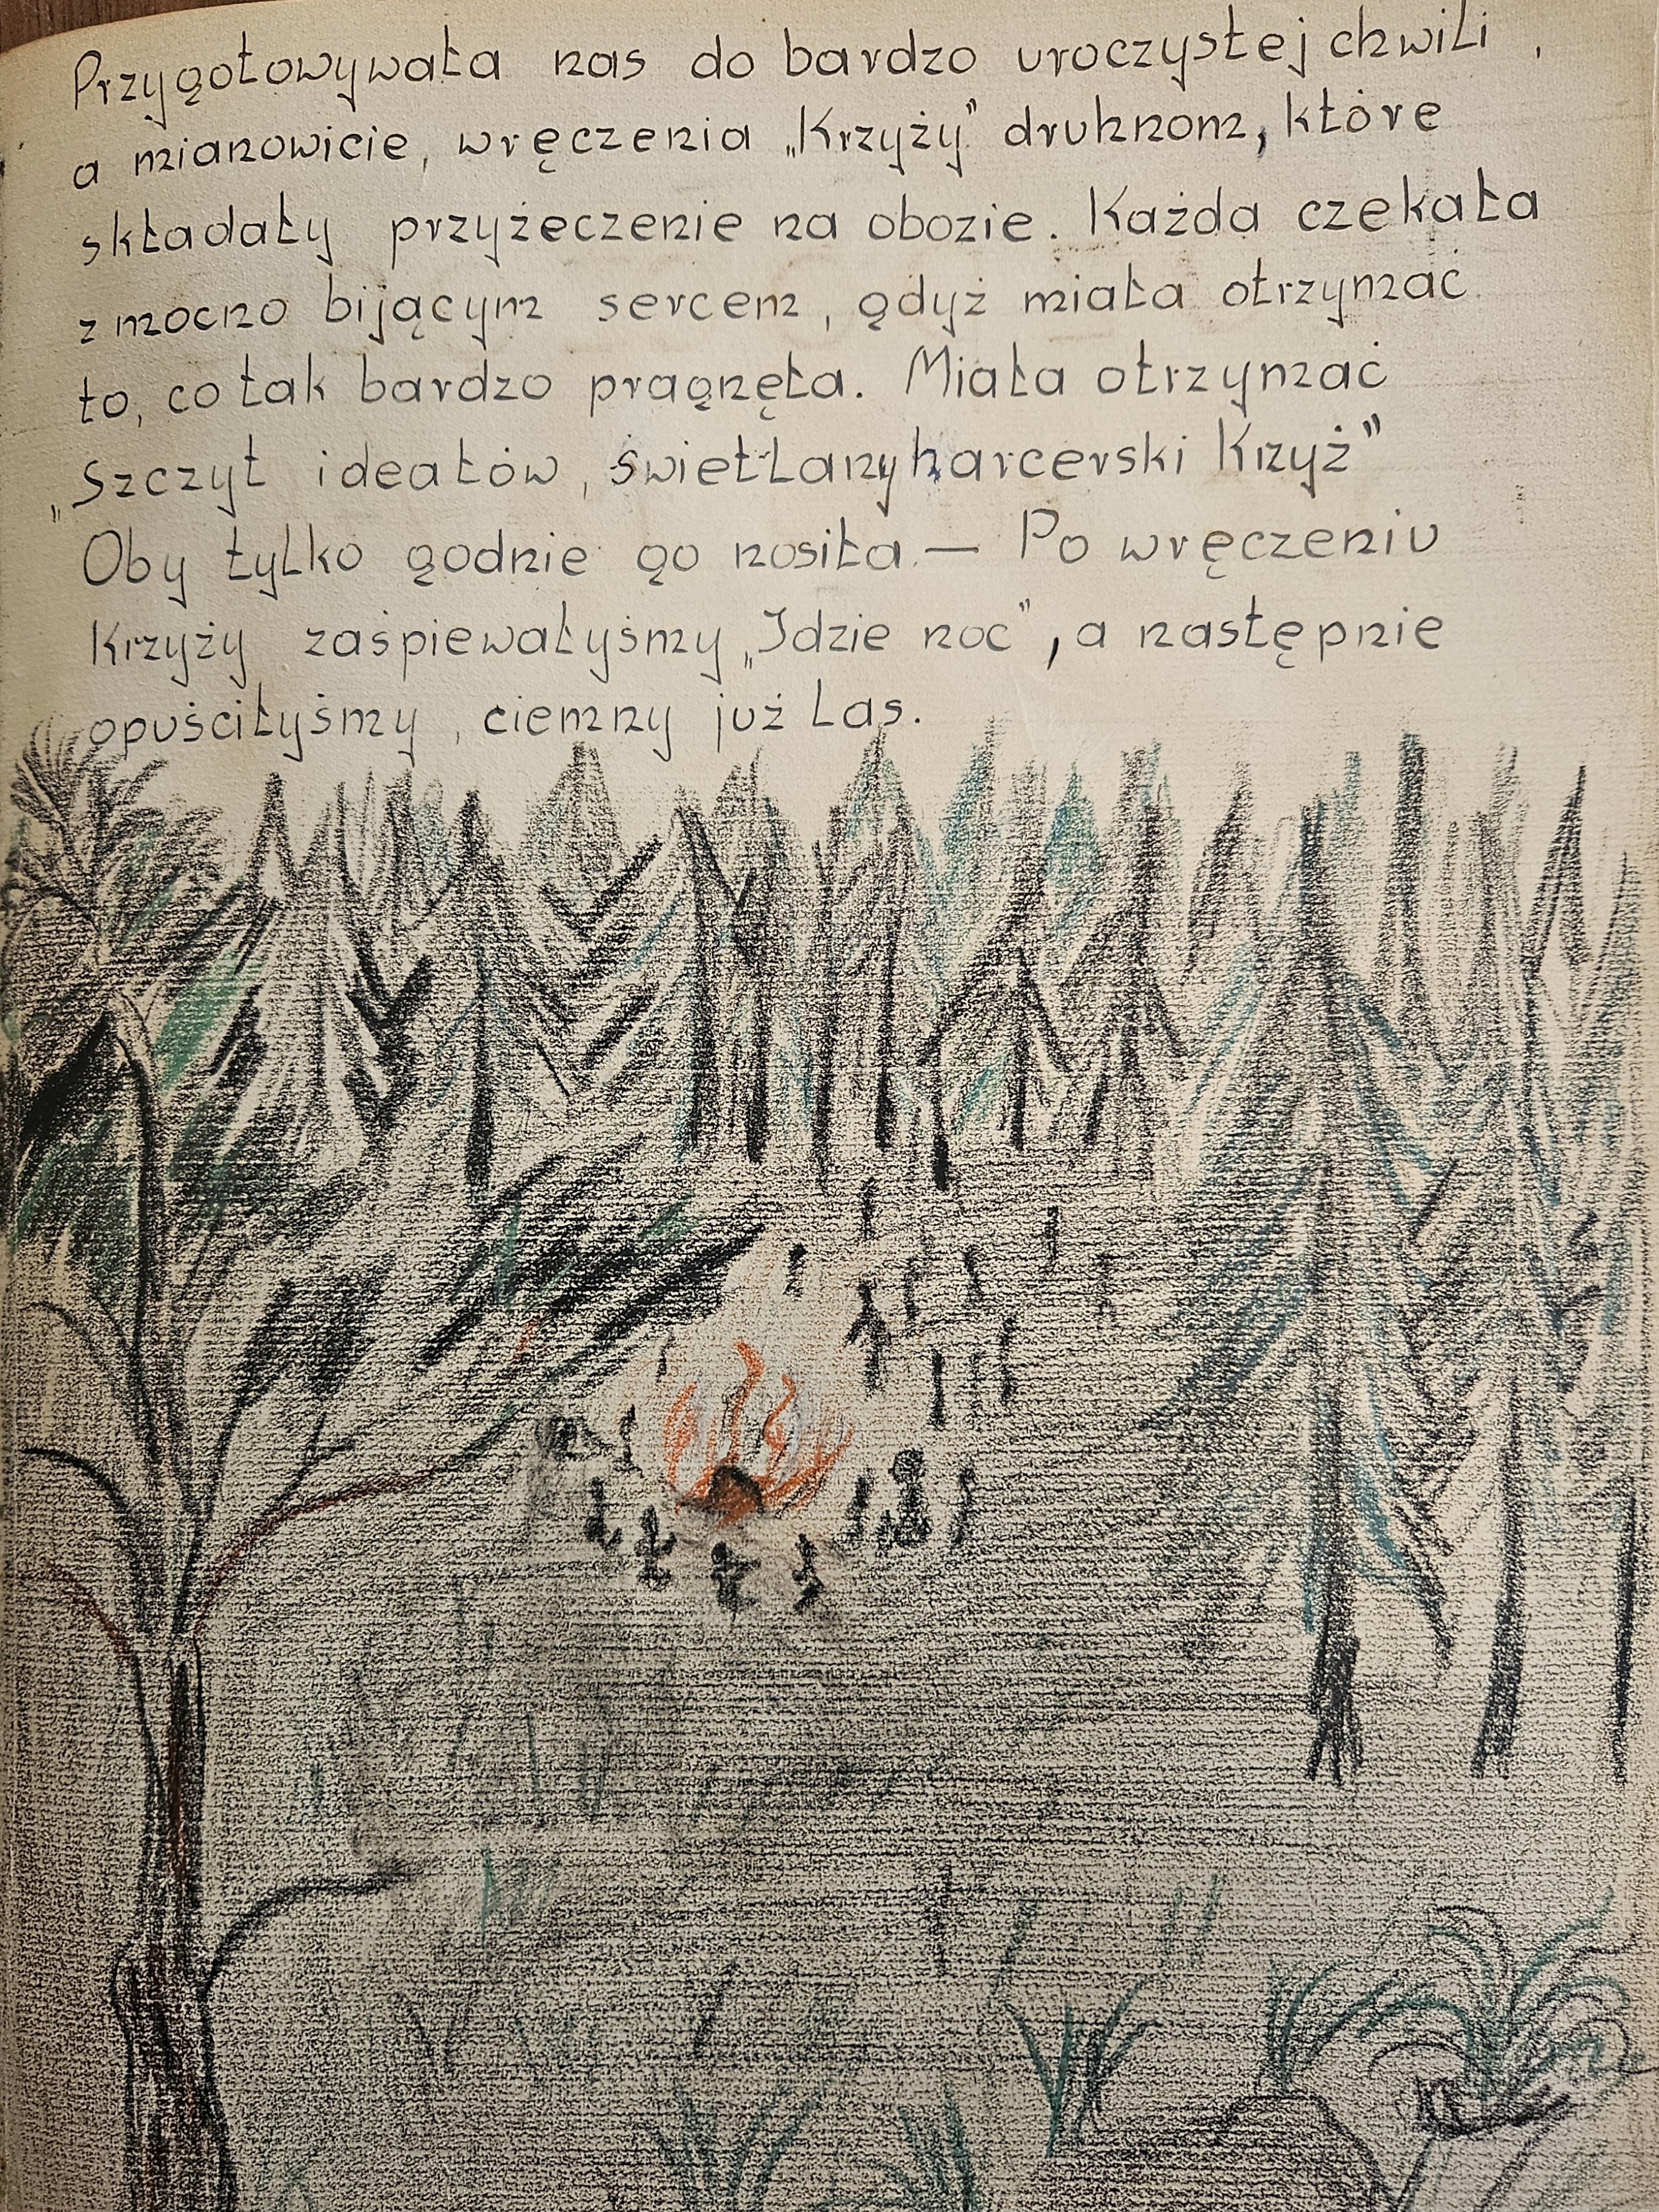 Przygotowywała nas do bardzo uroczystej chwili,
a mianowicie, wręczenia „Krzyży” druhnom, które
składały przyżeczenie na obozie. Każda czekała
z mocno bijącym sercem, gdyż miała otrzymać
to, co tak bardzo pragnęła. Miała otrzymać
„Szczyt ideałów, świetlany harcerski Krzyż”
Oby tylko godnie go nosiła. — Po wręczeniu
Krzyży zaśpiewałyśmy „Idzie noc”, a następnie
opuściłyśmy, ciemny już las.